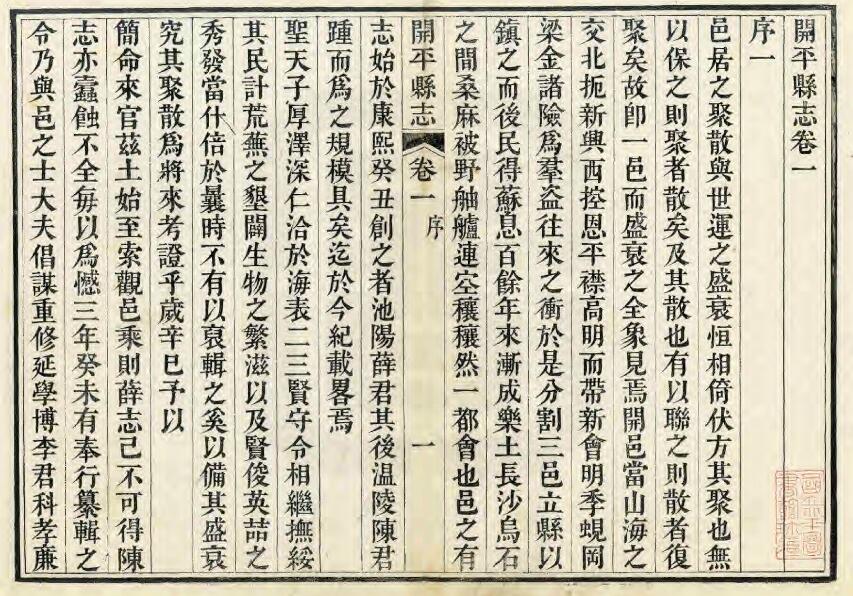 開平縣志卷一
序一
邑居之聚散與世運之盛衰恒相倚伏方其聚也無
以保之則聚者散矣及其散也有以聯之則散者復
聚矣故卽一邑而盛衰之全象見焉開邑當山海之
交北扼新興西控恩平襟高明而帶新會明季蜆岡
梁金諸險爲羣盜往來之衝於是分割三邑立縣以
鎮之而後民得蘇息百餘年來漸成樂土長沙烏石
之間桑麻被野舳艫連空穰穰然一都會也邑之有
開平縣志
卷一
序
一
志始於康熙癸丑創之者池陽薛君其後温陵陳君
踵而爲之規模具矣迄於今紀載畧焉
聖天子厚澤深仁洽於海表二三賢守令相繼撫綏
其民計荒蕪之墾闢生物之繁滋以及賢俊英喆之
秀發當什倍於曩時不有以裒輯之奚以備其盛衰
究其聚散爲將來考證乎歲辛巳予以
簡命來官茲土始至索觀邑乘則薛志己不可得陳
志亦蠧蝕不全每以爲憾三年癸未有奉行纂輯之
令乃與邑之士大夫倡謀重修延學博李君科孝廉